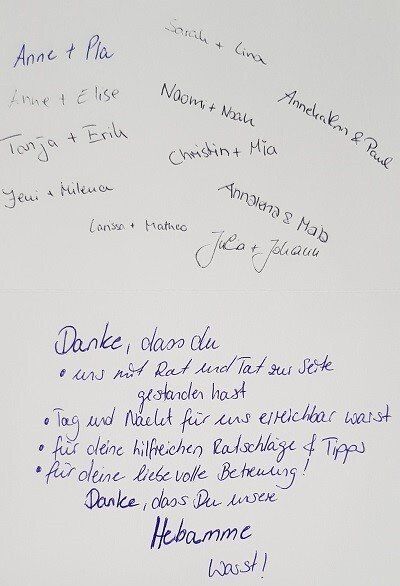 Sarah + Lina
Anne + Pia
Anne + Elise
Naomi + Noah
Annekatrin & Paul
Tanja + Erik
Christin + Mia
Jeni + Milena
Annalena & Mats
Larissa + Matheo
Julia + Johann
Danke, dass du
• uns mit Rat und Tat zur Seite
gestanden hast
• Tag und Nacht für uns erreichbar warst
• für deine hilfreichen Ratschläge & Tipps
• für deine liebevolle Betreuung!
Danke, dass Du unsere
Hebamme
warst!